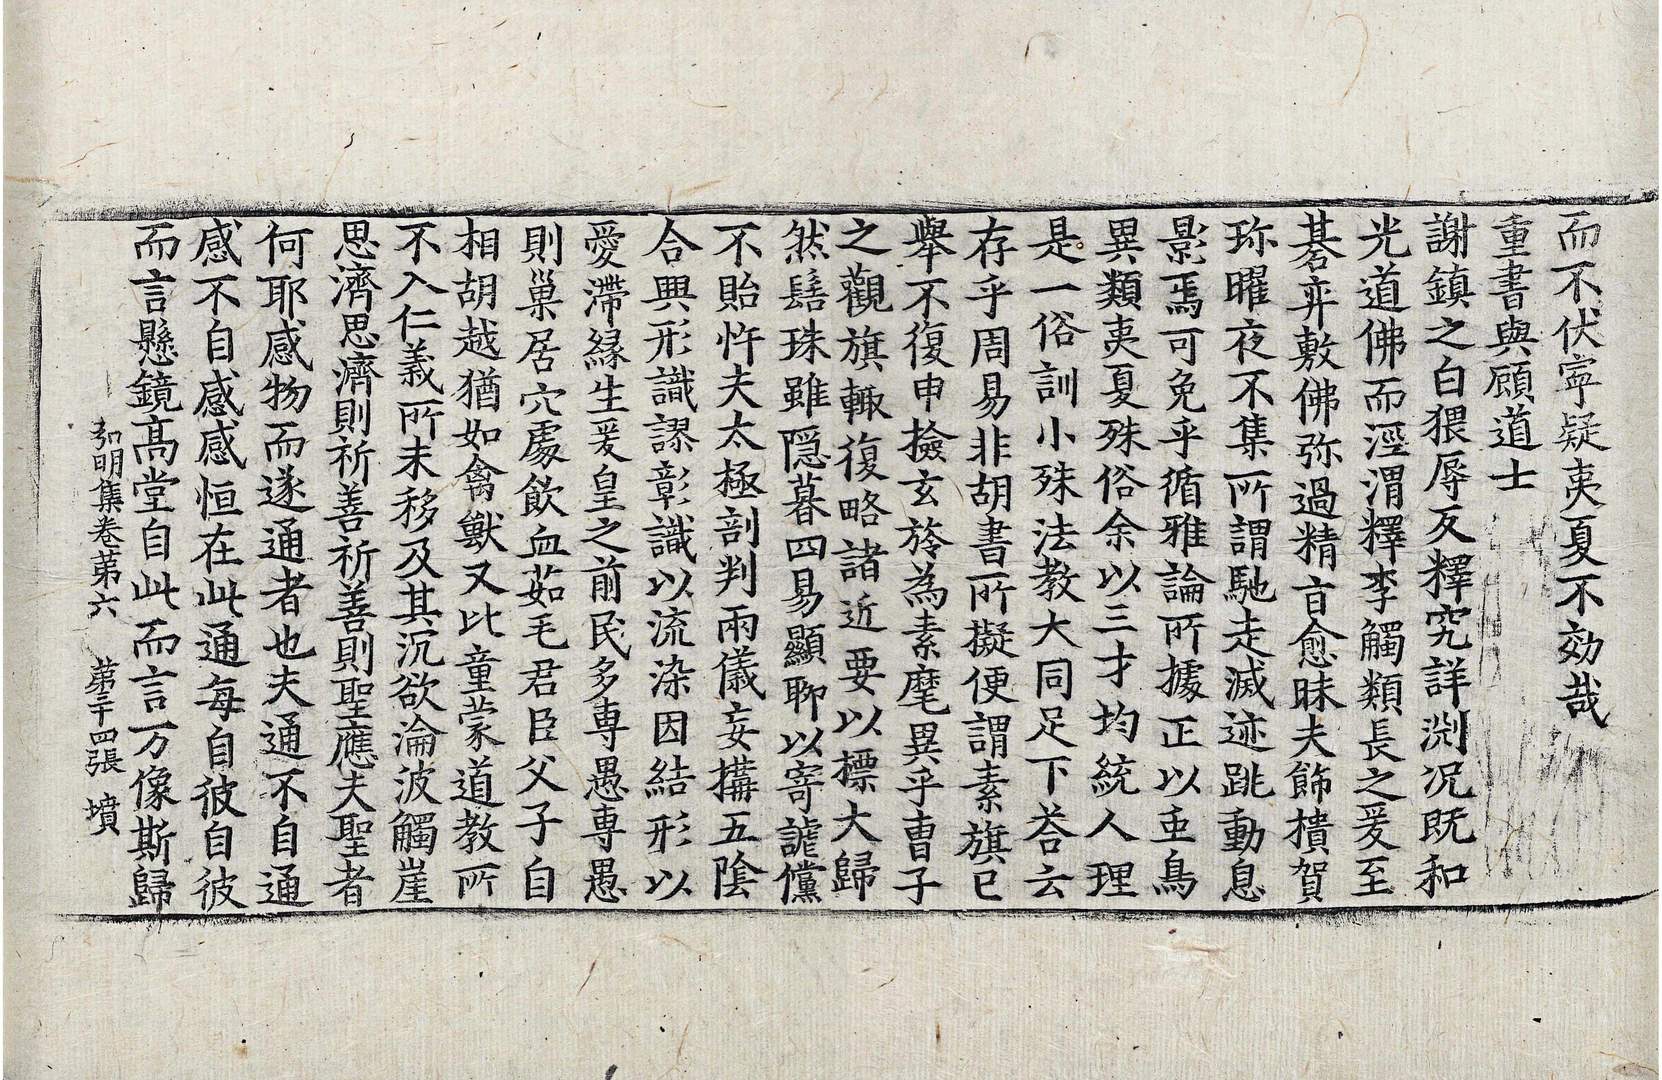 而不伏寧疑夷夏不効哉
重書與顧道士
謝鎮之白猥辱反釋究詳渕況既和
光道佛而涇渭釋李觸類長之爰至
碁弈敷佛弥過精旨愈昧夫飾樻賀
珎曜夜不集所謂馳走滅迹跳動息
影焉可免乎循雅論所據正以𠀍鳥
異類夷夏殊俗余以三才均統人理
是一俗訓小殊法教大同足下荅云
存乎周易非胡書所擬便謂素旗已
舉不復申撿玄旍為素麾異乎曺子
之觀旗輙復略諸近要以標大歸
然髻珠雖隠暮四易顯聊以寄謔儻
不貽忤夫太極剖判兩儀妄搆五陰
合興形識謬彰識以流染因結形以
愛滯縁生爰皇之前民多専愚専愚
則巢居穴處飲血茹毛君臣父子自
相胡越猶如禽獸又比童蒙道教所
不入仁義所未移及其沉欲淪波觸崖
思濟思濟則祈善祈善則聖應夫聖者
何耶感物而遂通者也夫通不自通
感不自感感恒在此通每自彼自彼
而言懸鏡髙堂自此而言万像斯歸
弘明集卷苐六 苐三十四張 墳